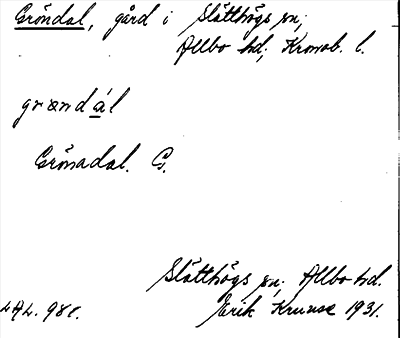 Gröndal, gård i Slätthögs sn;
Allbo hd, Kronob. l.
grøndál
Grönadal. G.
Slätthögs sn; Allbo hd.
Erik Kruuse 1931.